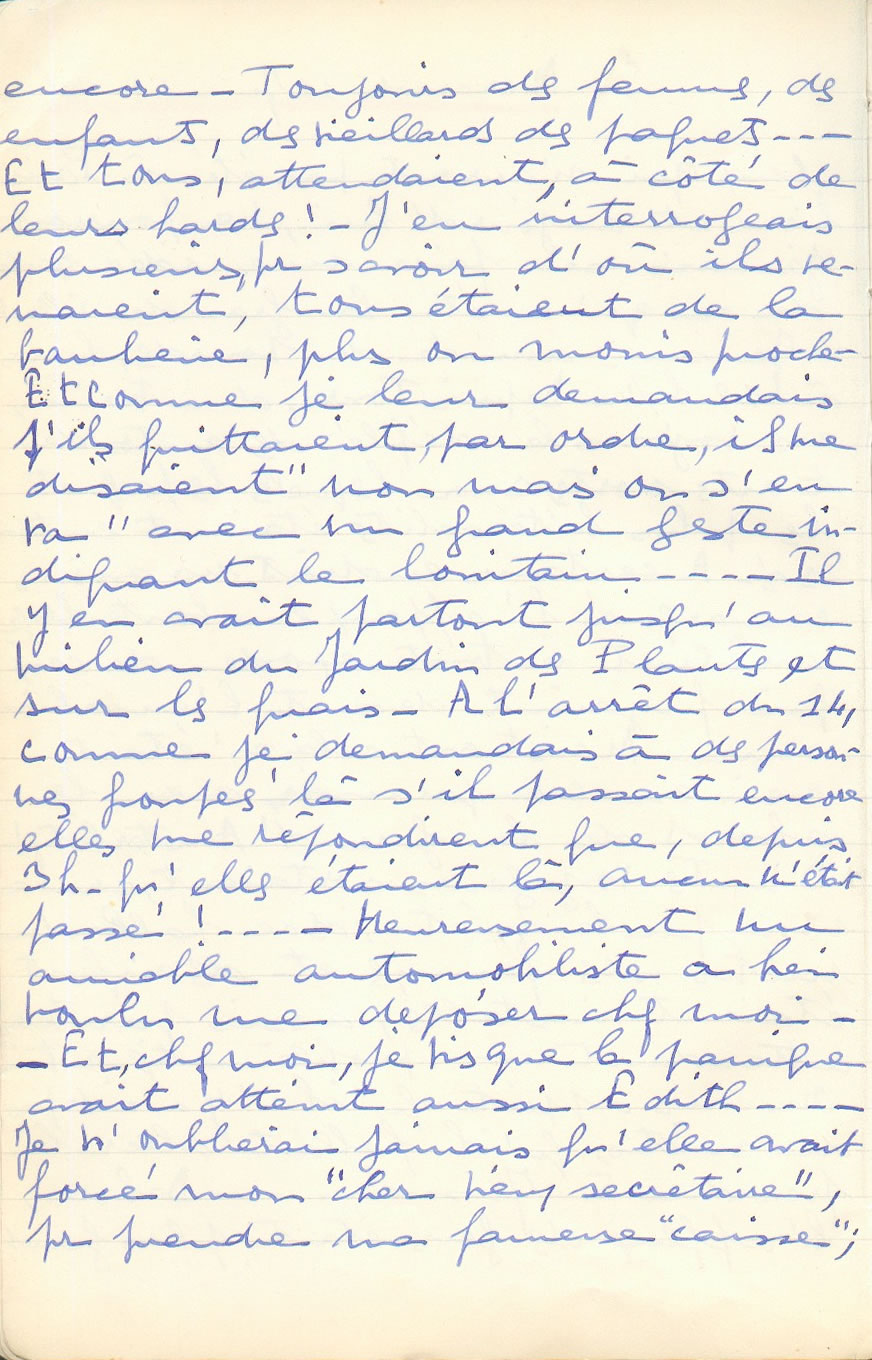 encore - Toujours des femmes, des
enfants, des vieillards des paquets - - -
Et tous, attendaient, à côté de
leurs hards ! - J'en interrogeais
plusieurs, pr savoir d'où ils ve-
naient, tous étaient de la
banlieue, plus ou moins proche -
Et comme je leur demandais
s'ils quittaient, par ordre, ils me
disaient " non mais on s'en
va " avec un grand geste in-
diquant le lointain - - - - Il
y en avait partout jusqu'au
milieu du Jardin des Plantes et
sur les quais - A l'arrêt du 14,
comme je demandais à des person-
nes groupées là s'il passait encore
elles me répondirent que, depuis
3h - qu'elles étaient là, aucun n'était
passé ! - - - - Heureusement un
aimable automobiliste a bien
voulu me déposer chez moi -
- Et, chez moi, je vis que la panique
avait atteint aussi Edith - - - -
Je n'oublierai jamais qu'elle avait
forcé mon "cher vieux secrétaire",
pr prendre ma fameuse "caisse" ;